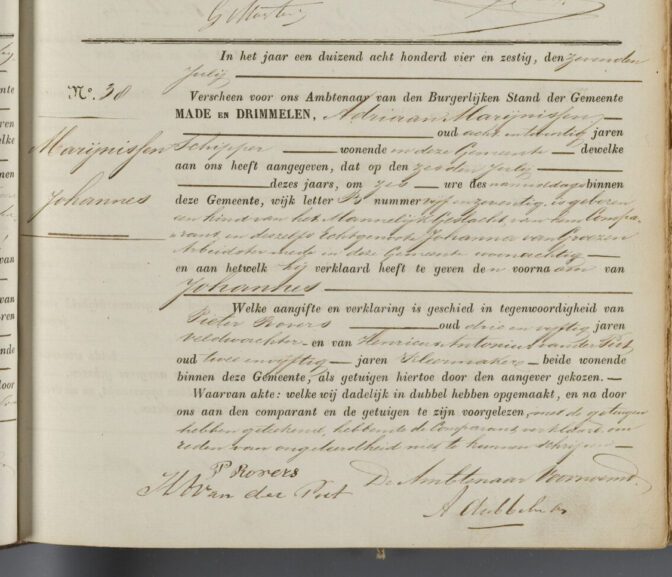 G Martens
In het jaar een duizend acht honderd vier en zestig, den zevenden
Julij
N.° 38
Verscheen voor ons Ambtenaar van den Burgerlijken Stand der Gemeente
MADE EN DRIMMELEN, Adriaan Marijnissen
oud acht en twintig jaren
Marijnissen
Schipper wonende in deze Gemeente dewelke
aan ons heeft aangegeven, dat op den zesden Julij
Johannes
dezes jaars, om zes ure des namiddags binnen
deze Gemeente, wijk letter B nummer vijf en zeventig is geboren
een kind van het Mannelijk Geslacht, van hem Compa-
rant, en deszelfs Echtgenoote Johanna van Groezen
Arbeidster mede in deze Gemeente woonachtig
en aan hetwelk hij verklaard heeft te geven den voornaam van
Johannes
Welke aangifte en verklaring is geschied in tegenwoordigheid van
Pieter Rovers oud drie en vijftig jaren
Veldwachter en van Henricus Antonius van der Piet
oud twee en vijftig jaren Kleermaker beide wonende
binnen deze Gemeente, als getuigen hiertoe door den aangever gekozen.
Waarvan akte: welke wij dadelijk in dubbel hebben opgemaakt, en na door
ons aan den comparant en de getuigen te zijn voorgelezen, met de getuigen
hebben geteekend, hebbende de Comparant verklaard uit
reden van ongeleerdheid niet te kunnen schrijven
P Rovers
H A van der Piet
De Ambtenaar Voornoemd
A Dubbelm